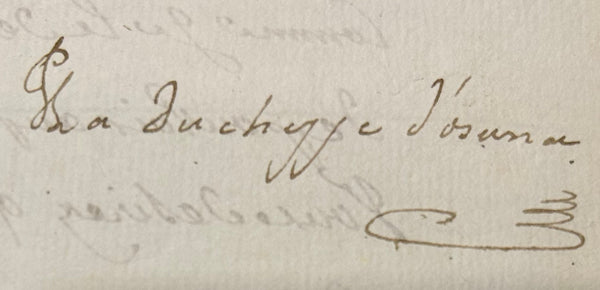 La duchesse d'osuna